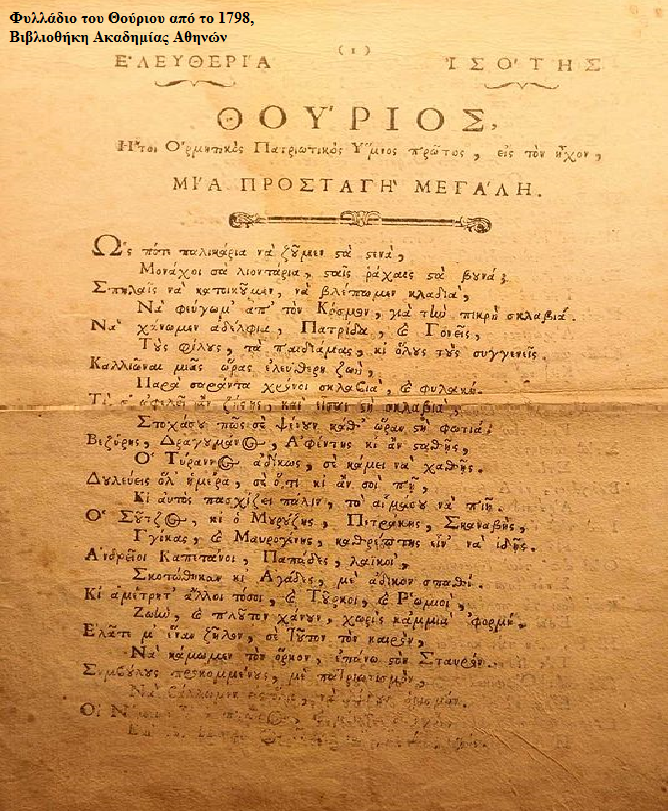 Φυλλάδιο του Θούριου από το 1798,
Βιβλιοθήκη Ακαδημίας Αθηνών
( 1 )
ΕΛΕΥΘΕΡΙΑ ΙΣΟΤΗΣ
ΘΟΥΡΙΟΣ,
Ἤτοι Ὁρμητικὸς Πατριωτικὸς Ὕμνος πρῶτος, εἰς τὸν ἦχον,
ΜΙΑ ΠΡΟΣΤΑΓΗ ΜΕΓΑΛΗ.
Ὡς πότε παλικάρια νὰ ζοῦμεν ϛὰ ϛενὰ,
Μονάχοι σὰ λιοντάρια, ϛαῖς ράχαες ϛὰ βουνά;
Σπηλαὶς νὰ κατοικοῦμεν, νὰ βλέπωμεν κλαδιὰ,
Νὰ φεύγωμ' ἀπ' τὸν Κόσμον, γιὰ τὴν πικρὴ σκλαβιά.
Νὰ χάνωμεν ἀδέλφια, Πατρίδα, καὶ Γονεῖς,
Τοὺς φίλους, τὰ παιδιάμας, κι ὅλους τοὺς συγγενεῖς.
Καλλιῶναι μιᾶς ὥρας ἐλεύθερη ζωὴ,
Παρὰ σαράντα χρόνοι σκλαβιὰ, καὶ φυλακή.
Τί σ' ὠφελεῖ ἂν ζήσῃς, καὶ εἶσαι ϛὴ σκλαβιὰ,
Στοχάσου πῶς σὲ ψένουν καθ' ὥραν ϛὴ φωτιά;
Βεζύρης, Δραγουμάνος, Ἀφέντης κι ἂν ϛαθῇς,
Ὁ Τύραννος ἀδίκως, σὲ κάμει νὰ χαθῇς.
Δουλεύεις ὅλ' ἡμέρα, σὲ ὅ,τι κι ἂν σοὶ πῇ,
Κι αὐτὸς πασχίζει πάλιν, τὸ αἷμασου νὰ πίῃ.
Ὁ Σοῦτζος, κι ὁ Μουρούζης, Πετράκης, Σκαναβῆς,
Γγίκας, καὶ Μαυρογένης, καθρέπτης εἶν' νὰ ἰδῇς.
Ἀνδρεῖοι Καπετάνοι, Παπάδες, λαϊκοὶ,
Σκοτώθηκαν κι Ἀγάδες, μὲ ἄδικον σπαθί.
Κι ἀμέτρητ' ἄλλοι τόσοι, καὶ Τοῦρκοι, καὶ Ῥωμιοὶ,
Ζωὴν, καὶ πλοῦτον χάνουν, χωρὶς καμμιὰ 'φορμή.
Ἐλᾶτε μ' ἕναν ζῆλον, σὲ τοῦτον τὸν καιρὸν,
Νὰ κάμωμεν τὸν ὅρκον, ἐπάνω ϛὸν Σταυρόν.
Συμβούλους προκομμένους, μὲ πατριωτισμὸν,
Νὰ
Οἱ